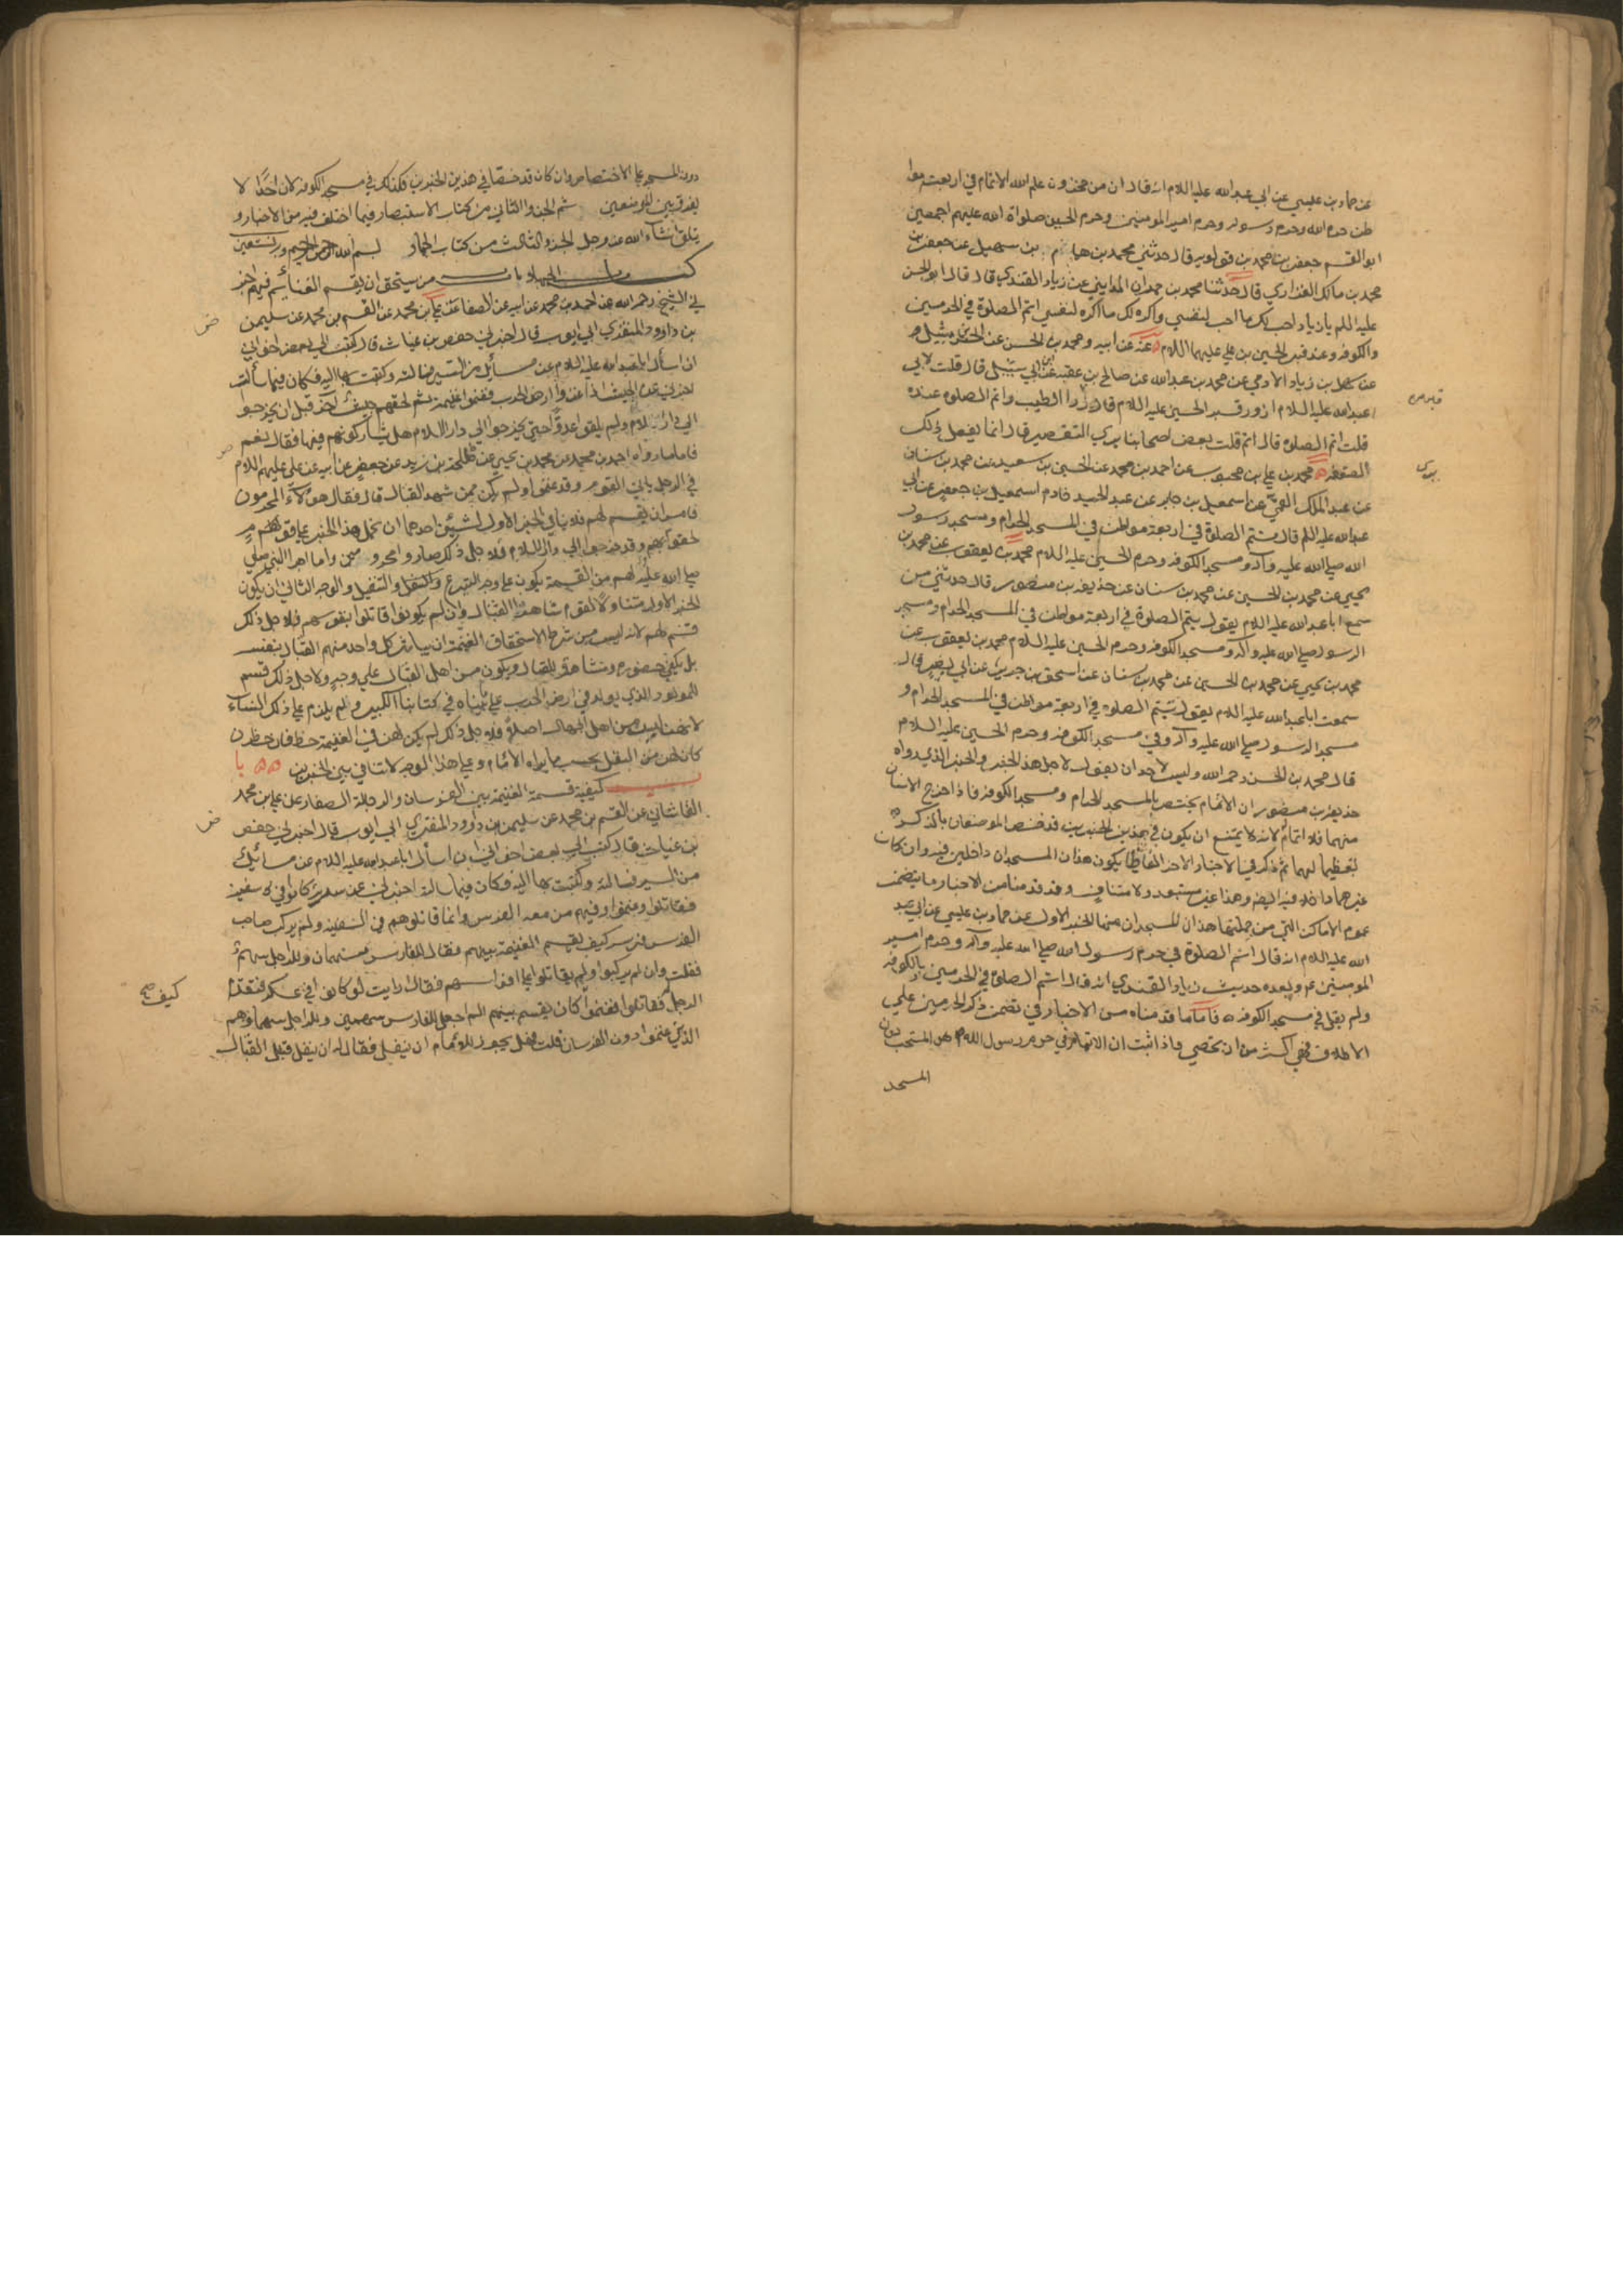 عن حماد بن عيسى عن ابي عبد الله عليه السلام انه قال ان من مخزون علم الله الاتمام في اربعة موا
طن حرم الله وحرم رسوله وحرم امير المومنين وحرم الحسين صلواة الله عليهم اجمعين
ابو القسم جعفر بن محمد بن قولويه قال حدثني محمد بن همام بن سهيل عن جعفر بن
محمد بن مالك الفزاري قال حدثنا محمد بن حمدان المدايني عن زياد القندي قال قال ابو الحسن
عليه السلم يا زياد احب لك ما احب لنفسي واكره لك ما اكره لنفسي اتم الصلوة في الحرمين
والكوفه وعند قبر الحسين بن علي عليهما السلام عنه عن ابيه ومحمد بن الحسن عن الحسن بن متيل
عن سهل بن زياد الادمي عن محمد بن عبد الله عن صالح بن عقبه عن ابي شبل قال قلت لابي
عبد الله عليه السلام ازور قبر الحسين عليه السلام قال زر الطيب واتم الصلوه عنده
قلت اتم الصلوه قال اتم قلت بعض اصحابنا يرى التقصير قال انما يفعل ذلك
الضعفه محمد بن علي بن محبوب عن احمد بن محمد عن الحسين بن سعيد عن محمد بن سنان
عن عبد الملك القمي عن اسمعيل بن جابر عن عبد الحميد خادم اسمعيل بن جعفر عن ابي
عبد الله عليه السلم قال تتم الصلوة في اربعة مواطن في المسجد الحرام ومسجد رسول
الله صلي الله عليه وآله ومسجد الكوفه وحرم الحسين عليه السلام محمد بن يعقوب عن محمد بن
يحيي عن محمد بن الحسين عن محمد بن سنان عن حذيفه بن منصور قال حدثني من
سمع ابا عبد الله عليه السلام يقول تتم الصلوة في اربعة مواطن في المسجد الحرام ومسجد
الرسول صلي الله عليه وآله ومسجد الكوفه وحرم الحسين عليه السلام محمد بن يعقوب عن
محمد بن يحيي عن محمد بن الحسين عن محمد بن سنان عن اسحق بن جرير عن ابي بصير قال
سمعت ابا عبد الله عليه السلام يقول تتم الصلوه في اربعة مواطن في المسجد الحرام و
مسجد الرسول صلي الله عليه وآله وفي مسجد الكوفه وحرم الحسين عليه السلام
قال محمد بن الحسن رحمه الله وليس لاحد ان يقول لاجل هذا الخبر والخبر الذي رواه
حذيفه بن منصور ان الاتمام يختص بالمسجد الحرام ومسجد الكوفه فاذا خرج الانسان
منهما فلا اتمام لانه لا يمتنع ان يكون في هذين الخبرين قد خص الموضعان بالذكر
تعظيما لهما ثم ذكر في الاخبار الاخر الفاظا يكون هذان المسجدان داخلين فيه وان كان
غيرهما داخلا فيه ايضا وهذا غير مستبعد ولا متناف وقد قدمنا من الاخبار ما يتضمن
عموم الاماكن التي من جملتها هذان المسجدان منها الخبر الاول عن حماد بن عيسي عن ابي عبد
الله عليه السلام انه قال اتم الصلوة في حرم رسول الله صلي الله عليه وآله وحرم امير
المومنين ع وبعده حديث زياد القندي انه قال اتم الصلوة في الحرمين وبالكوفه
ولم يقل في مسجد الكوفه فاما ما قدمناه من الاخبار في تضمن ذكر الحرمين علي
الاطلاق فهي اكثر من ان تحصي واذا ثبت ان الاتمام في حرم رسول الله هو المستحب دون
المسجد
دون المسجد علي الاختصاص وان كان قد خصا في هذين الخبرين فكذلك في مسجد الكوفه لان احدًا لا
يفرق بين الموضعين تم الجزو الثاني من كتاب الاستبصار فيما اختلف فيه من الاخبار و
يتلوه ان شاء الله عز وجل الجزو الثالث من كتاب الجهاد بسم الله الرحمن الرحيم وبه نستعين
كتاب الجهاد باب من يستحق ان يقسم الغنايم فيهم اخبر
ني الشيخ رحمه الله عن احمد بن محمد عن ابيه عن الصفار عن علي بن محمد عن القسم بن محمد عن سليمن
بن داوود المنقري ابي ايوب قال اخبرني حفص بن غياث قال كتب الي بعض اخواني
ان اسأل ابا عبد الله عليه السلام عن مسائل من السير فسالته وكتبت بها اليه فكان فيما سألت
اخبرني عن الجيش اذا غزوا ارض الحرب فغنموا غنيمة ثم لحقهم جيش آخر قبل ان يخرجوا
الي دار السلام ولم يلقوا عدوًّا حتي يخرجوا الي دار السلام هل يشاركونهم فيها فقال نعم
فاما ما رواه احمد بن محمد عن محمد بن يحيي عن طلحة بن زيد عن جعفر عن ابيه عن علي عليهم السلام
في الرجل ياتي القوم وقد غنموا ولم يكن ممن شهد القتال قال فقال هؤلاء المحرومون
فامر ان يقسم لهم فلا ينافي الخبر الاول لشيئين احدهما ان نحمل هذا الخبر علي قوم
لحقوا بهم وقد خرجوا الي دار السلام فلاجل ذلك صاروا محرومين واما امر النبي صلي
صلي الله عليه لهم من القسمة يكون علي وجه التبرع والتنفل والتنفيل والوجه الثاني ان يكون
الخبر الاول متناولا لقوم شاهدوا القتال وان لم يكونوا قاتلوا بنفوسهم فلاجل ذلك
قسم لهم لانه ليس من شرط الاستحقاق الغنيمة ان يباشر كل واحد منهم القتال بنفسه
بل يكفي حضوره ومشاهدته للقتال ويكون من اهل القتال علي وجه ولاجل ذلك قسم
للمولود الذي يولد في ارض الحرب علي ما بيناه في كتابنا الكبير ولم يلزم علي ذلك النساء
لانهن ليس من اهل الجهاد اصلاً فلاجل ذلك لم يكن لهن في الغنيمة حظ فان حظرن
كان لهن من النفل بحسب ما يراه الامام وعلي هذا الوجه لا تنافي بين الخبرين با
ب كيفية قسمة الغنيمة بين الفرسان والرجالة الصفار عن علي بن محمد
القاشاني عن القسم بن محمد عن سليمن بن داوود المنقري ابي ايوب قال اخبرني حفص
بن غياث قال كتب الي بعض اخواني ان اسأل ابا عبد الله عليه السلام عن مسائل
من السير فسالته وكتبت بها اليه فكان فيما سالته اخبرني عن سرية كانوا في سفينة
فقاتلوا وغنموا وفيهم من معه الفرس وانما قاتلوهم في السفينه ولم يركب صاحب
الفرس فرسه كيف يقسم الغنيمة بينهم فقال للفارس سهمان وللراجل سهم
فقلت وان لم يركبوا ولم يقاتلوا علي افراسهم فقال ارايت لو كانوا في عسكر فتقدم
الرجل فقاتلوا فغنموا كان يقسم بينهم الم اجعل للفارس سهمين وللراجل سهما وهم
الذين غنموا دون الفرسان قلت فهل يجوز للامام ان ينفل فقال له ان ينفل قبل القتال
كيف صح